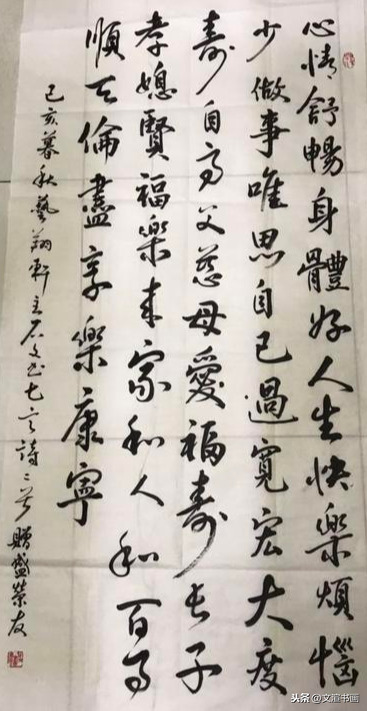 心情舒暢身體好人生快樂煩惱
少做事唯思自己過寬宏大度
壽自高父慈母愛福壽長子
孝媳賢福樂來家和人和百事
順天倫盡享樂康寧
己亥暮秋藝翔軒主石文書七言詩二首贈盛榮友
头条@文谊书画